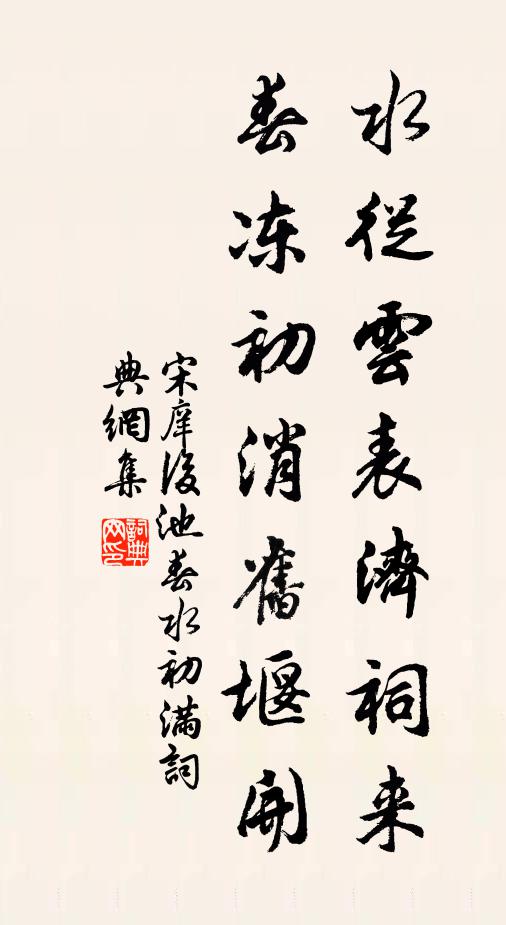 水從雲表濟祠来
春冻初消舊堰開
宋庠後池春水初滿詞
典網集
詞典网印